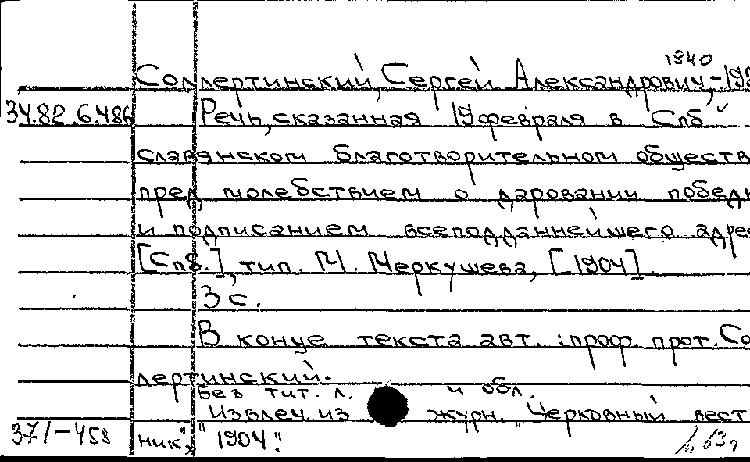 1840
Соллертинский, Сергей Александрович, -19
34.82.6.486 Речь, сказанная 19 февраля в Спб
славянском благотворительном обществ
пред молебствием о даровании победы
и подписанием всеподданнейшего адре
[Спб.], тип. М. Меркушева, [1904].
3 с.
В конце текста авт.: проф. прот. Со
лертинский.
Без тит. л. и обл.
Извлеч. из журн. "Церковный вест
371-458 ник", "1904".